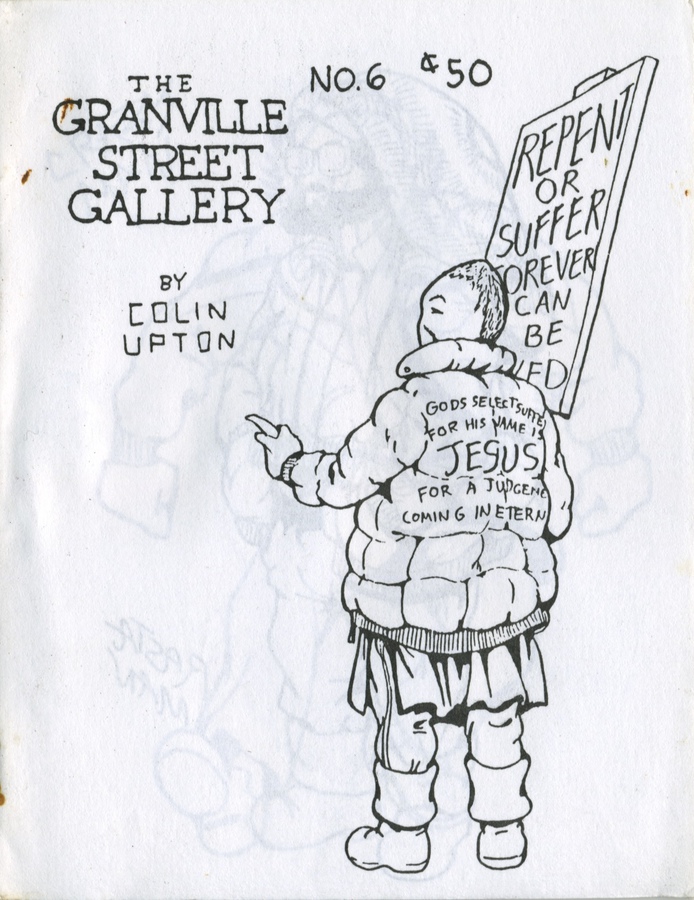 THE
GRANVILLE
STREET
GALLERY
NO.6 ¢50
BY
COLIN
UPTON
REPENT
OR
SUFFER
FOREVER
CAN
BE
GODS SELECT SUFFE
FOR HIS NAME IS
JESUS
FOR A JUDGEME
COMING IN ETERN
RASTA
MAN